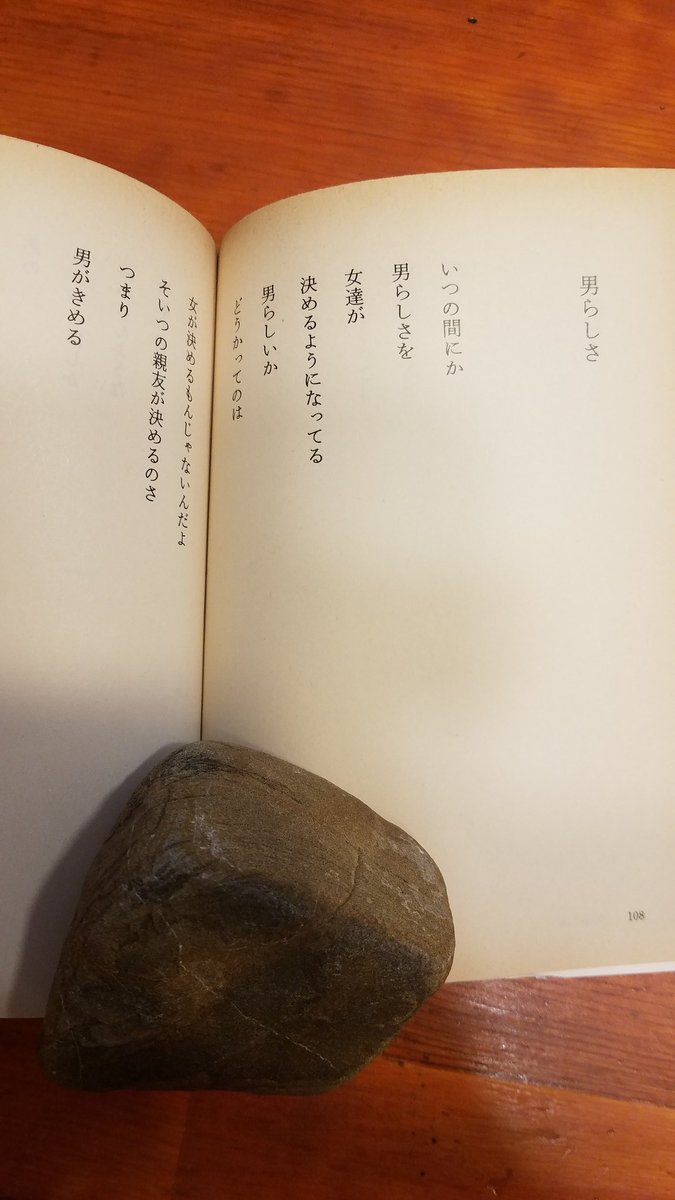 男らしさ
いつの間にか
男らしさを
女達が
決めるようになってる
男らしいか
どうかってのは
女が決めるもんじゃないんだよ
そいつの親友が決めるのさ
つまり
男がきめる
108